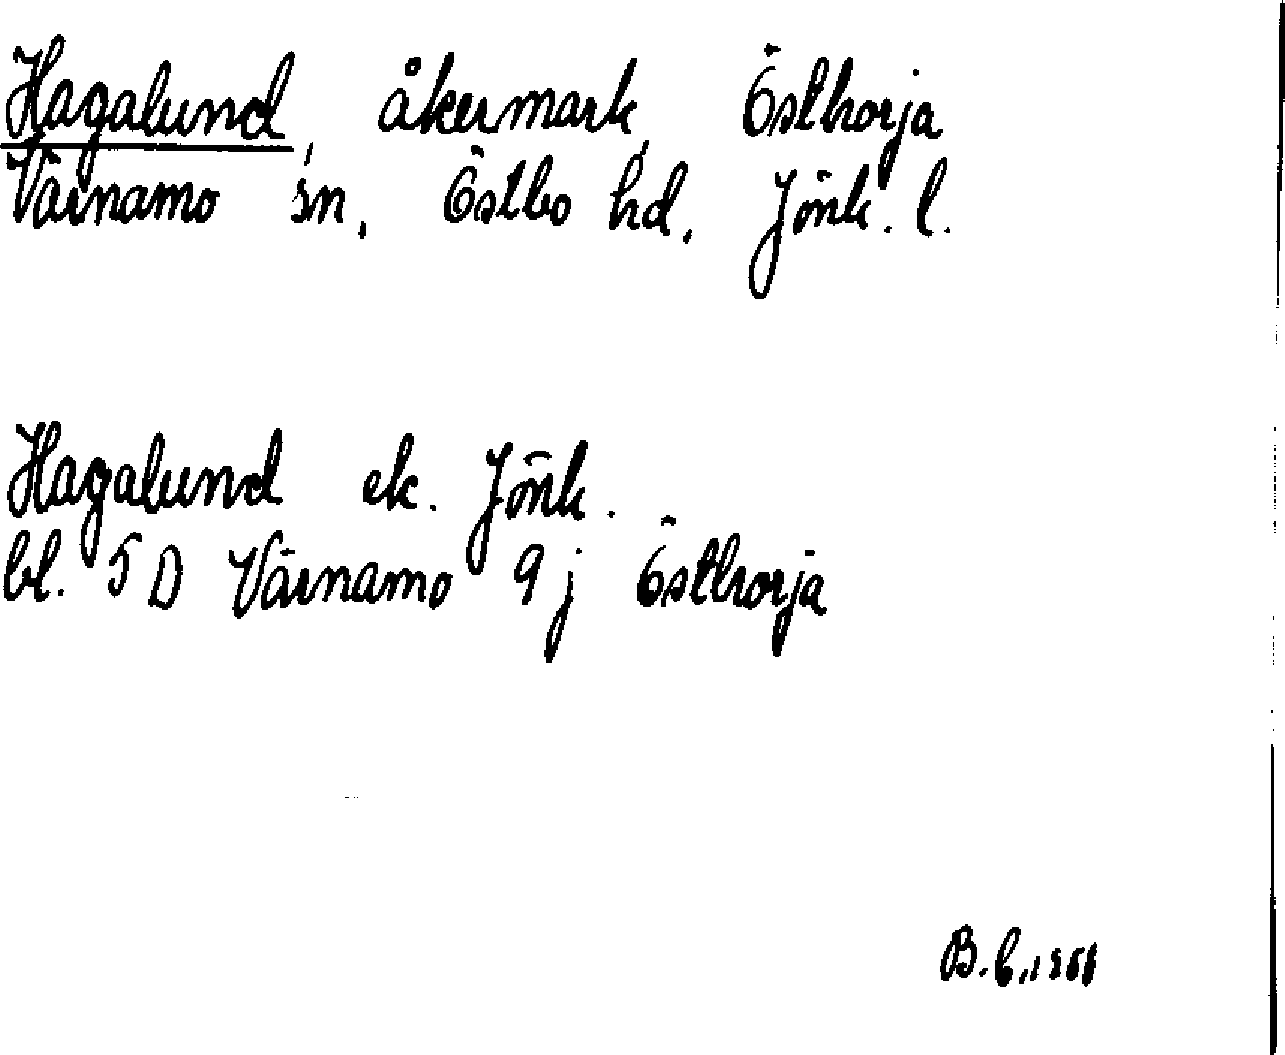 Hagalund, åkermark, Östhorja
Värnamo sn, Östbo hd, Jönk. l.
Hagalund ek. Jönk.
bl. 5 D Värnamo 9 j Östhorja
B.C.,